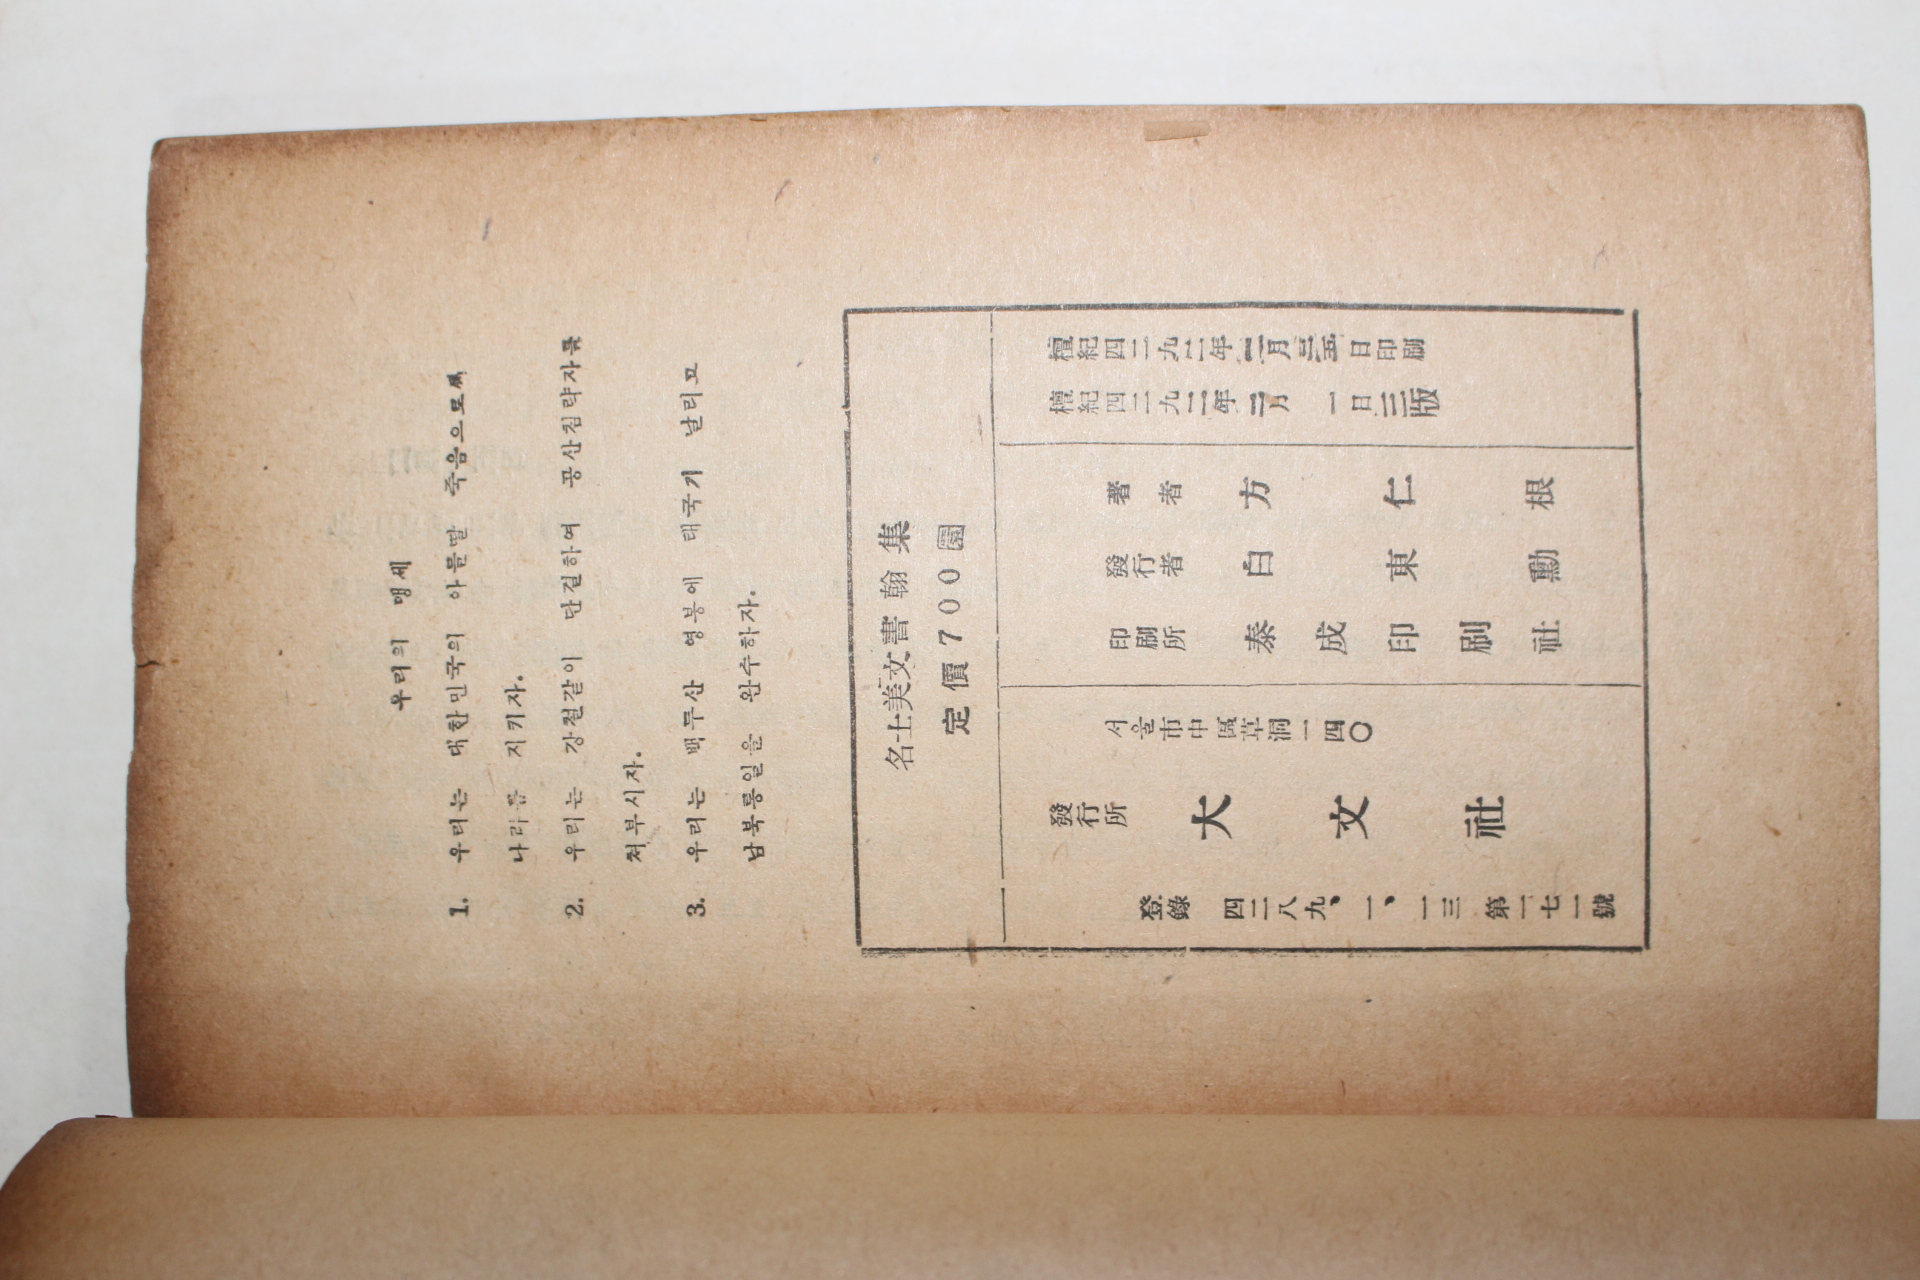 우리의 맹세
1. 우리는 대한민국의 아들딸 죽음으로써
나라를 지키자.
2. 우리는 강철같이 단결하여 공산침략자를
쳐부시자.
3. 우리는 백두산 영봉에 태극기 날리고
남북통일을 완수하자.
名士美文書翰集
定價700圜
檀紀四二九二年 月 日印刷
檀紀四二九二年二月 一日三版
著者 方仁根
發行者 白東勳
印刷所 泰成印刷社
서울市中區草洞一四〇
發行所 大文社
登錄 四二八九、一、一三 第一七一號